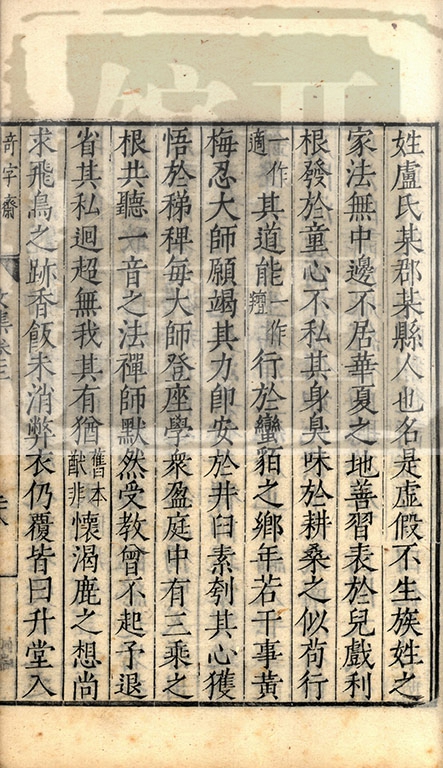 姓盧氏某郡某縣人也名是虛假不生族姓之
家法無中邊不居華夏之地善習表於兒戲利
根發於童心不私其身臭味於耕桑之侶茍行
一作適其道能一作羶行於蠻貊之鄉年若干事黃
梅忍大師願竭其力即安於井臼素刳其心獲
悟於稊稗每大師登座學衆盈庭中有三乘之
根共聽一音之法禪師默然受教曾不起予退
省其私迥超無我其有猶舊本猷非懷渴鹿之想尚
求飛鳥之跡香飯未消弊衣仍覆皆曰升堂入
奇字齋
文集卷三